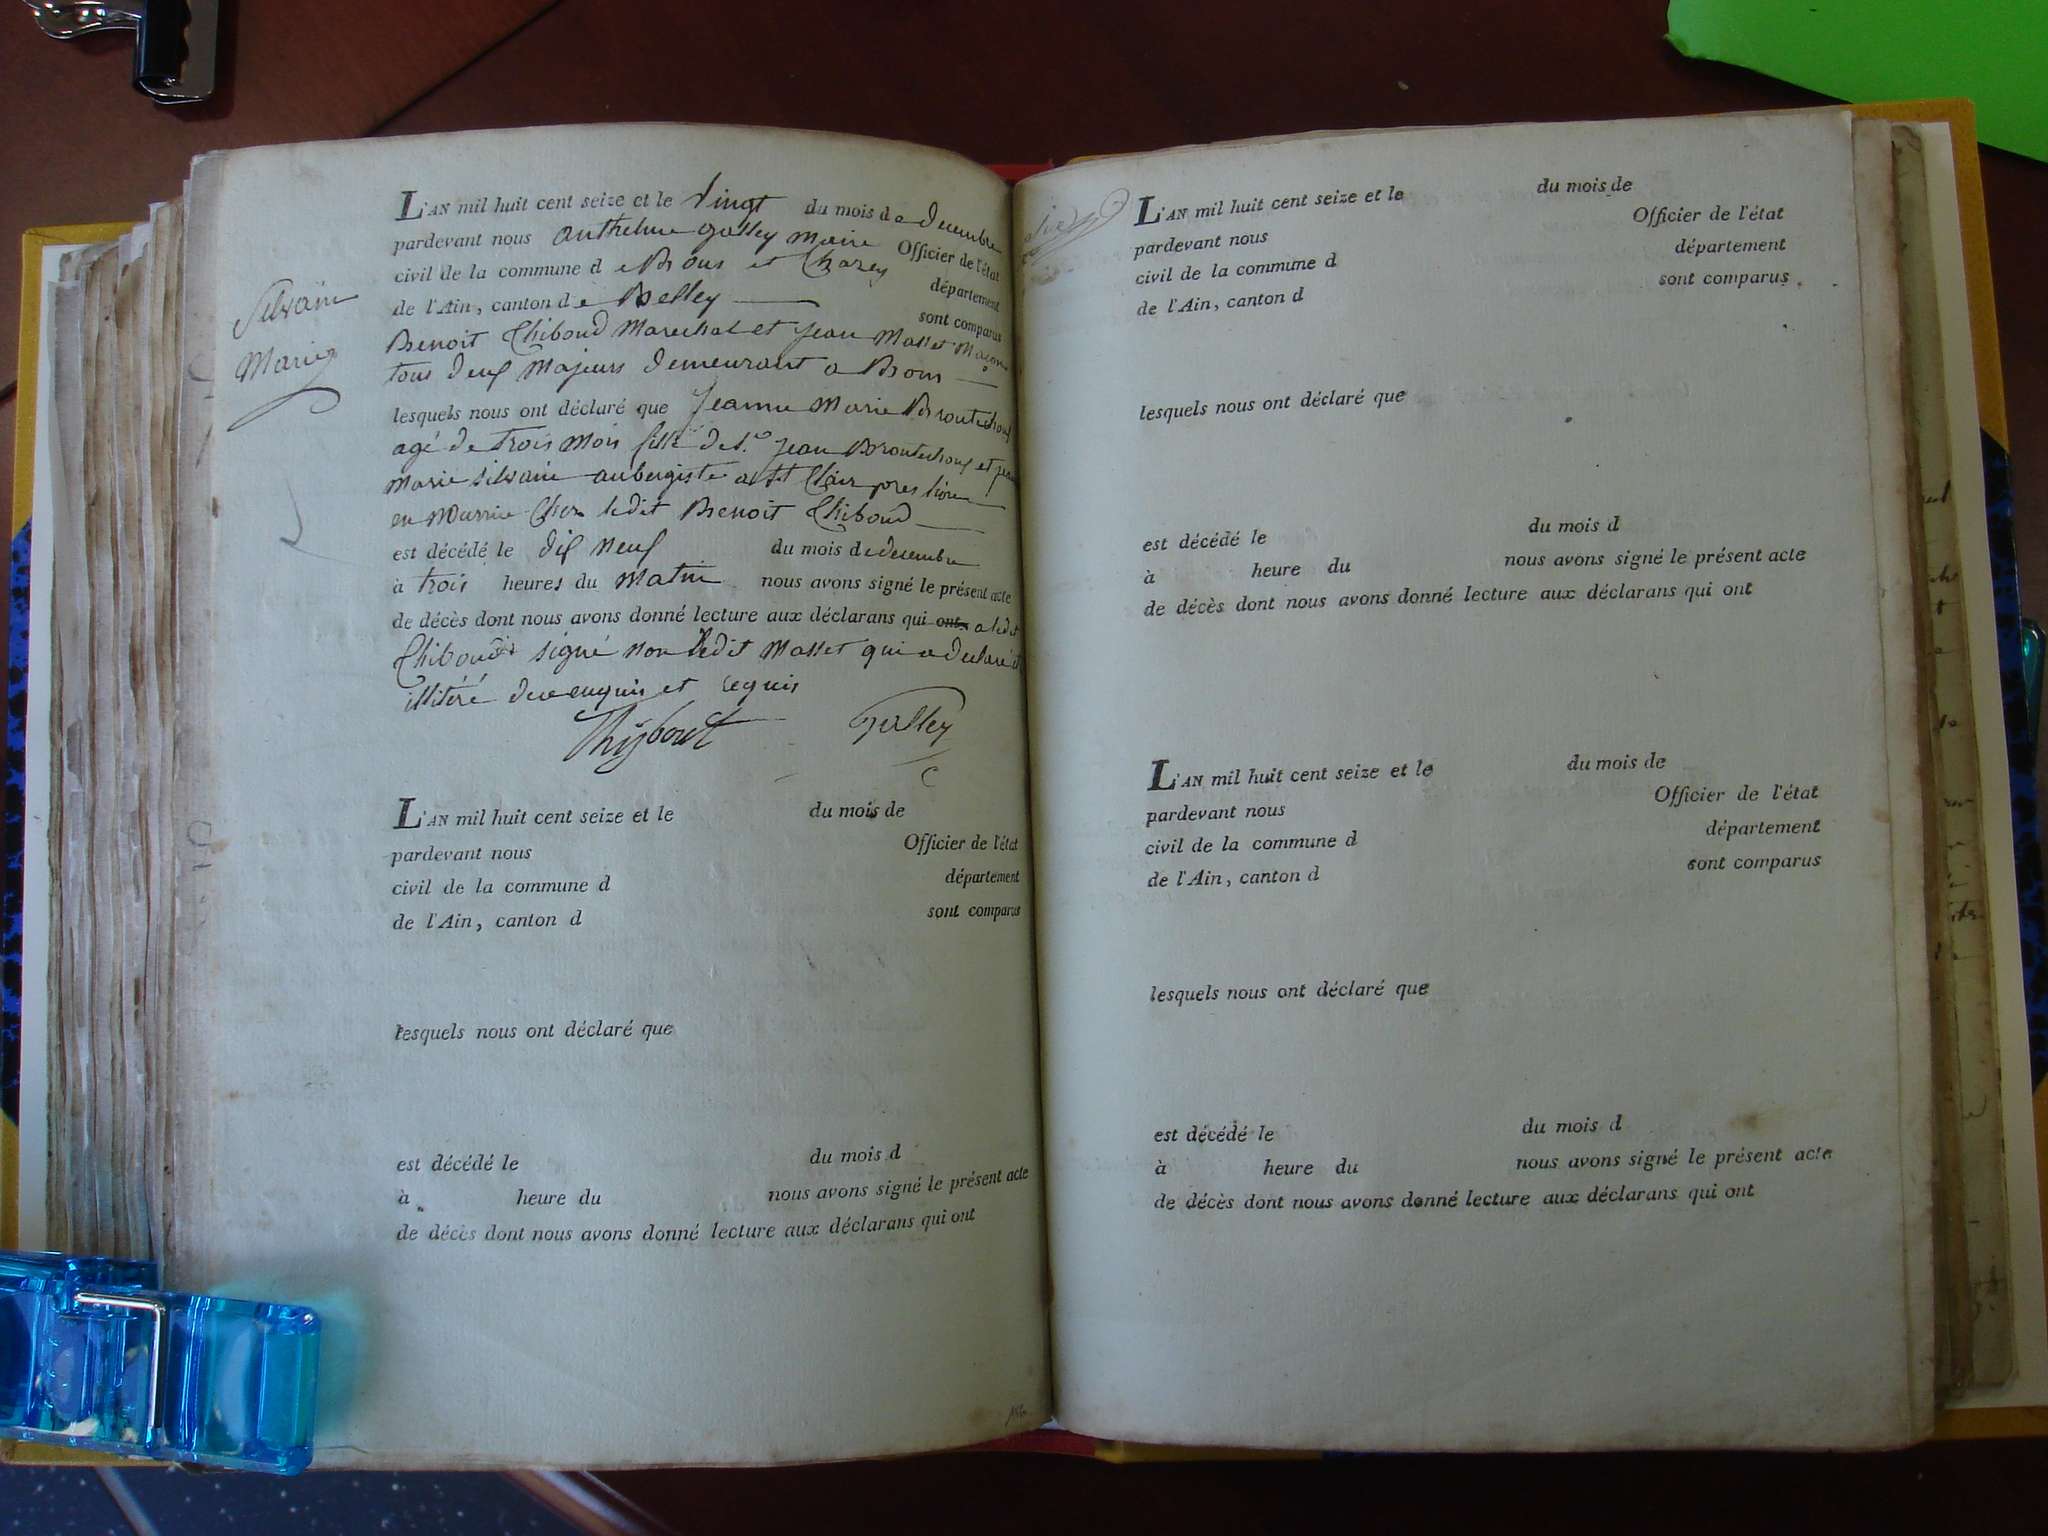 Silvain
Marie
L'AN mil huit cent seize et le vingt du mois de decembre
pardevant nous anthelme galley maire Officier de l'état
civil de la commune de Bons et Chazey département
de l'Ain, canton de Belley sont comparus
Benoit Thiboud Marechal et jean Masset Maçon
tous deux Majeurs demeurant a Bons
lesquels nous ont déclaré que jeanne Marie Broutechoux
agé de trois mois fille de s.r jean Broutechoux et
Marie silvain aubergiste a st Clair pres
en nourrice Chez ledit Benoit Thiboud
est décédé le dix neuf du mois de decembre
à trois heures du Matin nous avons signé le présent acte
de décès dont nous avons donné lecture aux déclarans qui ont a ledit
Thiboud signé non ledit Masset qui a declaré
illitéré de ce enquis et requis
Thiboud Galley
L'AN mil huit cent seize et le du mois de
pardevant nous Officier de l'état
civil de la commune d département
de l'Ain, canton d sont comparus
lesquels nous ont déclaré que
est décédé le du mois d
à heure du nous avons signé le présent acte
de décès dont nous avons donné lecture aux déclarans qui ont
L'AN mil huit cent seize et le du mois de
pardevant nous Officier de l'état
civil de la commune d département
de l'Ain, canton d sont comparus
lesquels nous ont déclaré que
est décédé le du mois d
à heure du nous avons signé le présent acte
de décès dont nous avons donné lecture aux déclarans qui ont
L'AN mil huit cent seize et le du mois de
pardevant nous Officier de l'état
civil de la commune d département
de l'Ain, canton d sont comparus
lesquels nous ont déclaré que
est décédé le du mois d
à heure du nous avons signé le présent acte
de décès dont nous avons donné lecture aux déclarans qui ont